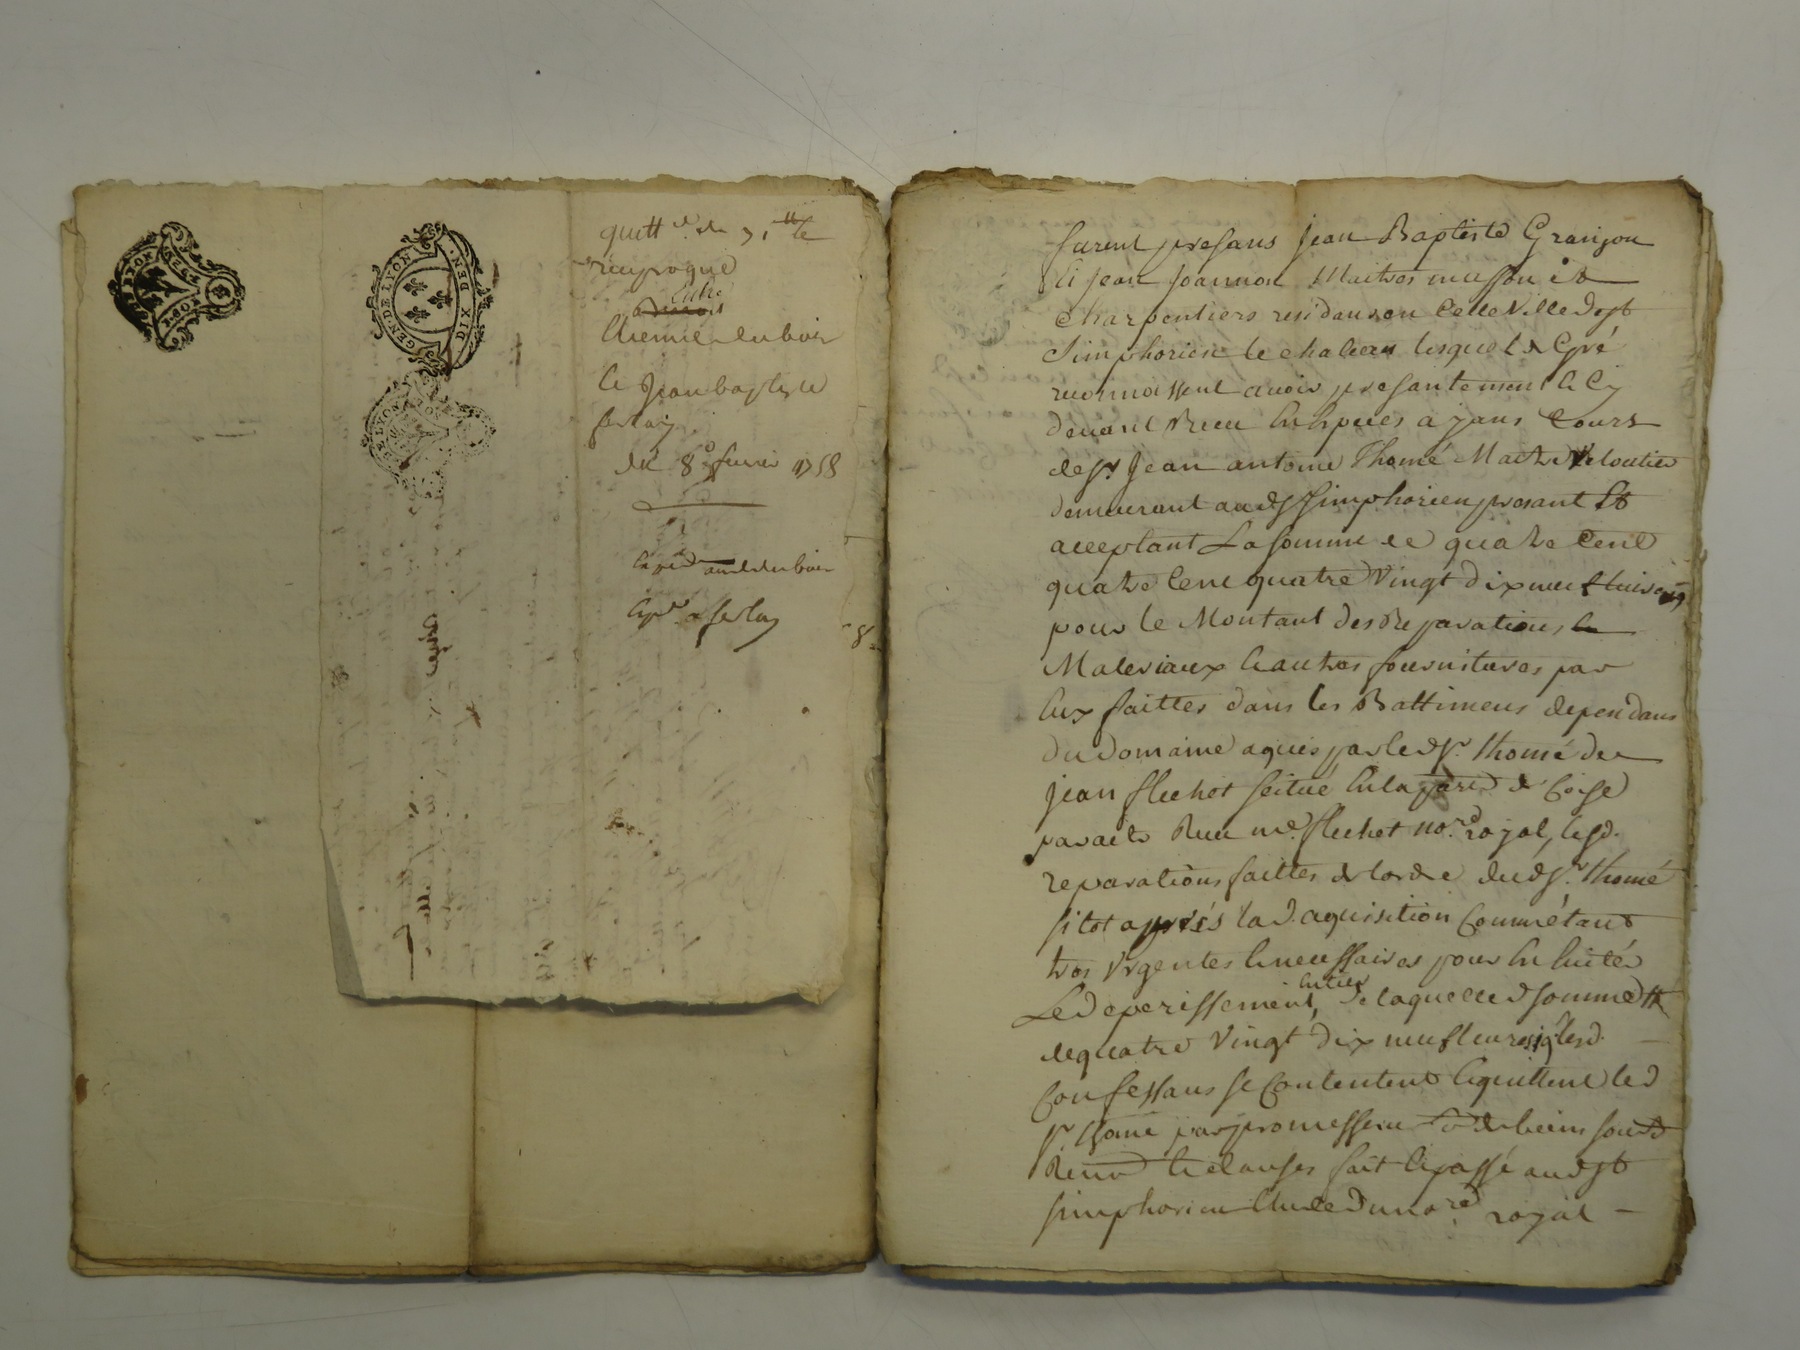 GEN. DE LYON
DIX DEN.
quitt.ce de 71 tt et
reciproque
Entre
Etienne dubois
et Jean baptiste
ferlay
du 8e. fevrier 1758
furent presans Jean Baptiste Granjon
et jean joannon Maitres masson et
charpentiers residans en cette Ville de st
simphorien le chateau lesquels de Gré
reconnoissent avoir presantement et cy
devant Receu en especes ayans Cours
de sr Jean antoine Thomé Maitre Veloutier
demeurant aud st simphorien presant Et
acceptant La somme de quatre Cent
quatre Cent quatre Vingt dix neuf livres
pour le Montant des Reparations, et
Materiaux et autres fournitures par
Eux faittes dans les Battimens dependans
du domaine aquis par led sr. Thomé de
jean flechot scitué En la parr. de Coise
par acte Receu me. flechot nore. royal, lesd.
reparations faittes de lordre dud sr. Thomé
sitot après lad. aquisition Comme étant
tres Urgentes et necessaires pour En Eviter
Le deperissement entier, de laquelle d somme
de quatre Vingt dix neuf livres lesd.
Confessans se Contentent et quittent led
sr. Thomé par promesses de biens soumis.
Renon. et clauses fait et passé aud st
simphorien Etude du nore. royal